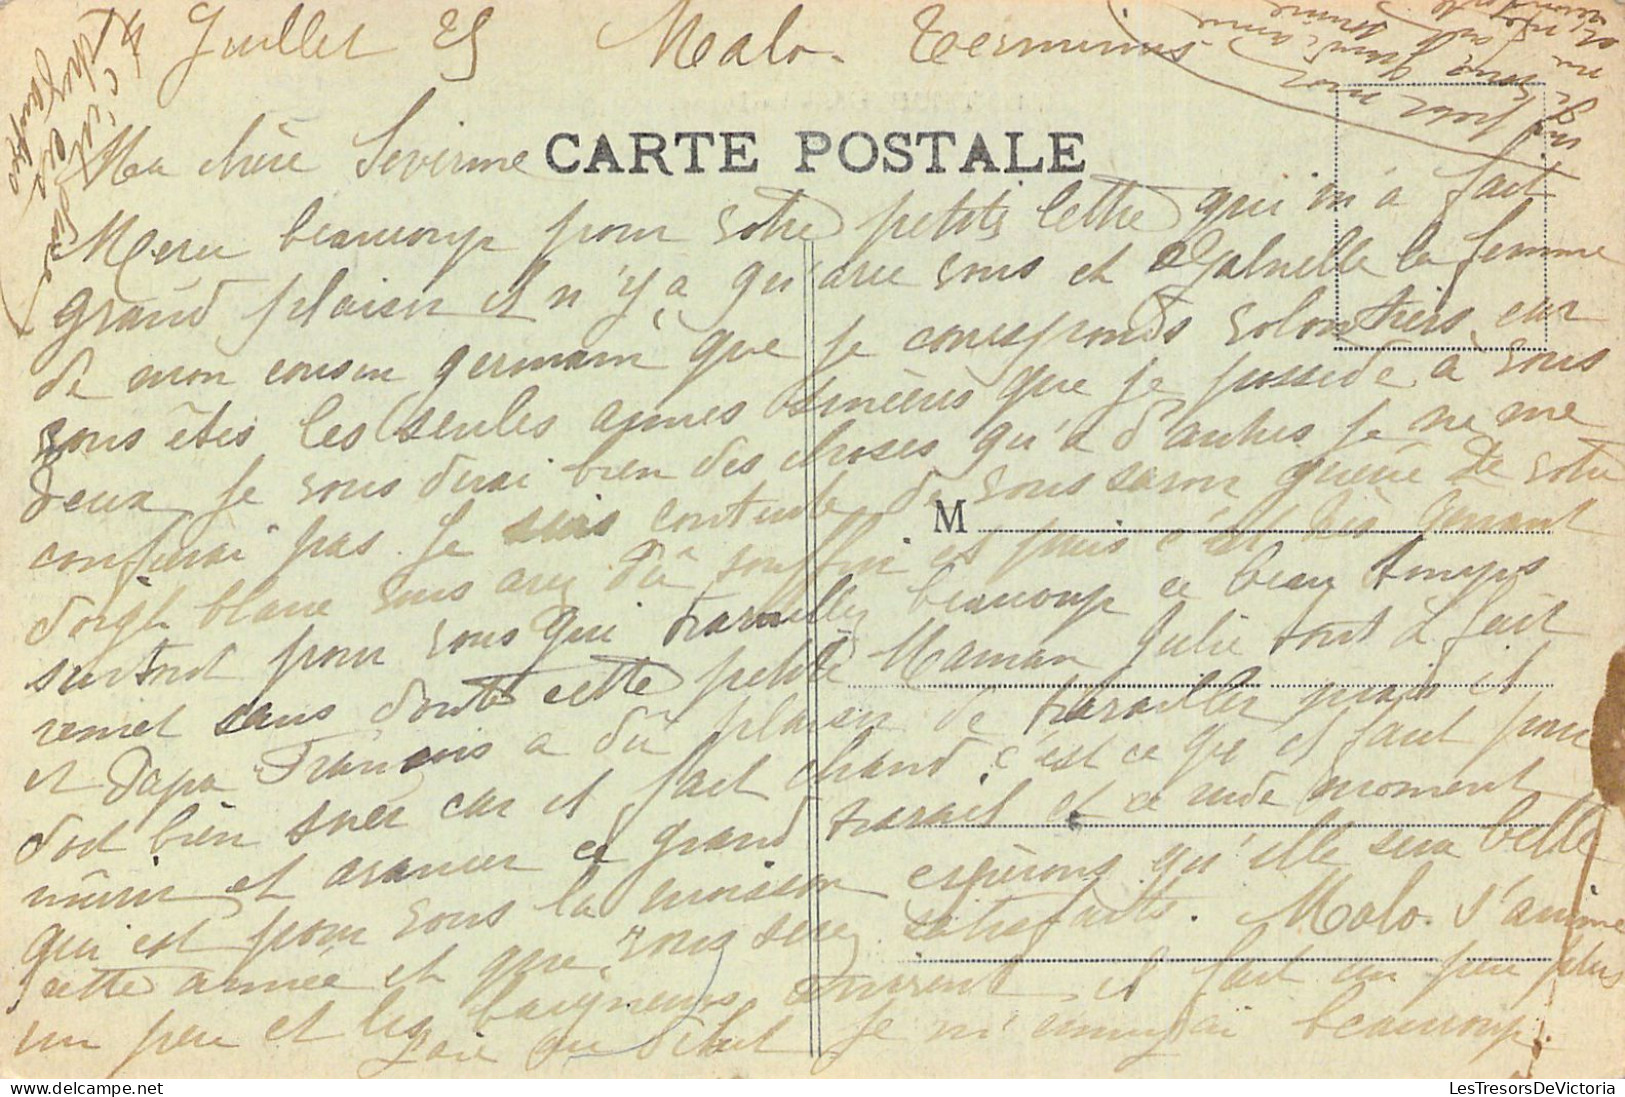 Juillet 25 Malo - Terminus
CARTE POSTALE
Ma chère Séverine
Merci beaucoup pour votre petite lettre qui m'a fait
grand plaisir il n'y a qu'avec vous et Gabrielle la femme
de mon cousin germain que je corresponds volontiers car
vous êtes les seules amies sincères que je possède à vous
deux je vous dirai bien des choses qu'à d'autres je ne me
confierai pas. Je suis contente de vous savoir guérie de votre
doigt blanc vous avez dû souffrir et puis c'est très gênant
surtout pour vous qui travaillez beaucoup ce beau temps
remet sans doute cette petite Maman Julie tout à fait
et Papa François a du plaisir de travailler mais il
doit bien suer car il fait chaud, c'est ce qu'il faut pour
mûrir et avancer ce grand travail et ce rude moment
qui est pour vous la moisson espérons qu'elle sera belle
cette année et que vous serez satisfaits. Malo s'anime
un peu et les baigneurs arrivent, il fait un peu plus
gaie au début je m'ennuyai beaucoup.
M
LesTresorsDeVictoria